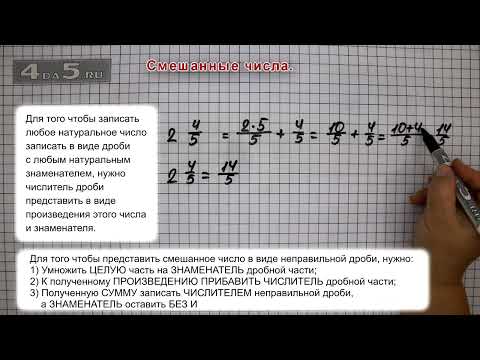 4DA5.RU
Смешанные числа.
Для того чтобы записать
любое натуральное число
записать в виде дроби
с любым натуральным
знаменателем, нужно
числитель дроби
представить в виде
произведения этого числа
и знаменателя.
2 4/5 = 2·5/5 + 4/5 = 10/5 + 4/5 = 10+4/5 14/5
2 4/5 = 14/5
Для того чтобы представить смешанное число в виде неправильной дроби, нужно:
1) Умножить ЦЕЛУЮ часть на ЗНАМЕНАТЕЛЬ дробной части;
2) К полученному ПРОИЗВЕДЕНИЮ ПРИБАВИТЬ ЧИСЛИТЕЛЬ дробной части;
3) Полученную СУММУ записать ЧИСЛИТЕЛЕМ неправильной дроби,
а ЗНАМЕНАТЕЛЬ оставить БЕЗ И